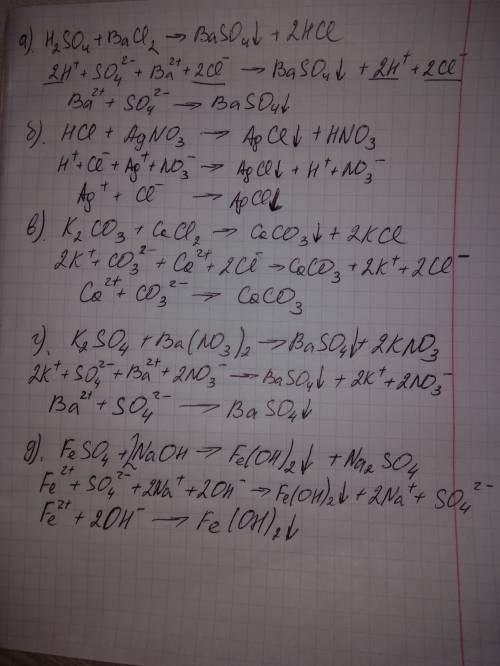 а). H₂SO₄ + BaCl₂ → BaSO₄↓ + 2HCl
2H⁺ + SO₄²⁻ + Ba²⁺ + 2Cl⁻ → BaSO₄↓ + 2H⁺ + 2Cl⁻
Ba²⁺ + SO₄²⁻ → BaSO₄↓
б). HCl + AgNO₃ → AgCl↓ + HNO₃
H⁺ + Cl⁻ + Ag⁺ + NO₃⁻ → AgCl↓ + H⁺ + NO₃⁻
Ag⁺ + Cl⁻ → AgCl↓
в). K₂CO₃ + CaCl₂ → CaCO₃↓ + 2KCl
2K⁺ + CO₃²⁻ + Ca²⁺ + 2Cl⁻ → CaCO₃ + 2K⁺ + 2Cl⁻
Ca²⁺ + CO₃²⁻ → CaCO₃
г). K₂SO₄ + Ba(NO₃)₂ → BaSO₄↓ + 2KNO₃
2K⁺ + SO₄²⁻ + Ba²⁺ + 2NO₃⁻ → BaSO₄↓ + 2K⁺ + 2NO₃⁻
Ba²⁺ + SO₄²⁻ → BaSO₄↓
д). FeSO₄ + 2NaOH → Fe(OH)₂↓ + Na₂SO₄
Fe²⁺ + SO₄²⁻ + 2Na⁺ + 2OH⁻ → Fe(OH)₂↓ + 2Na⁺ + SO₄²⁻
Fe²⁺ + 2OH⁻ → Fe(OH)₂↓